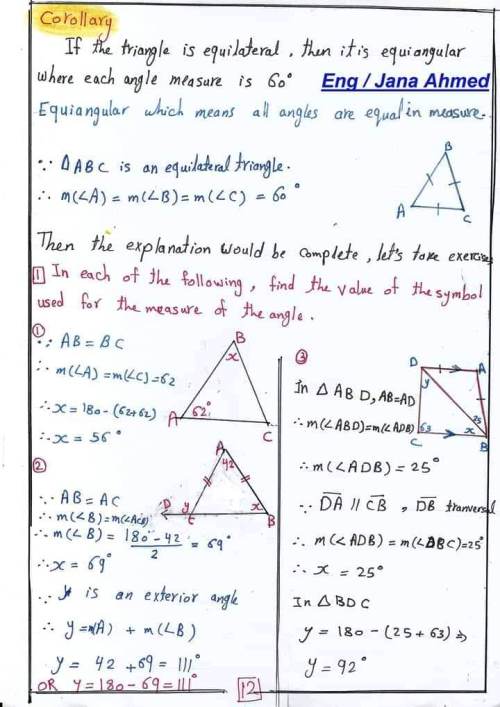 Corollary
If the triangle is equilateral, then it is equiangular
where each angle measure is 60°
Eng / Jana Ahmed
Equiangular which means all angles are equal in measure.
∵ ΔABC is an equilateral triangle.
∴ m(∠A) = m(∠B) = m(∠C) = 60°
B
A
C
Then the explanation would be complete, let's take exercises
1 In each of the following, find the value of the symbol
used for the measure of the angle.
①
∵ AB = BC
∴ m(∠A) = m(∠C) = 62
∴ x = 180 - (62+62)
∴ x = 56°
B
x
A
62°
C
②
∵ AB = AC
∴ m(∠B) = m(∠ACB)
∴ m(∠B) = 180 - 42 / 2 = 69°
∴ x = 69°
∵ y is an exterior angle
∴ y = m(A) + m(∠B)
y = 42 + 69 = 111°
OR y = 180 - 69 = 111°
A
42
D
y
C
x
B
③
In Δ ABD, AB = AD
∴ m(∠ABD) = m(∠ADB)
∴ m(∠ADB) = 25°
∵ DA // CB, DB tranversal
∴ m(∠ADB) = m(∠DBC) = 25°
∴ x = 25°
In Δ BDC
y = 180 - (25 + 63) ⇒
y = 92°
D
A
y
25
63
x
C
B
12